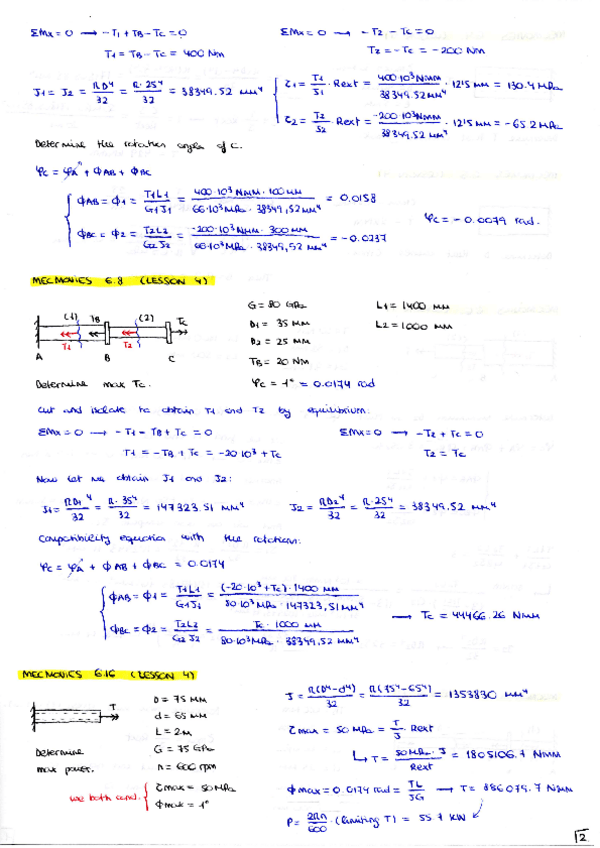 ΣMx=0 → -T1 + TB - Tc = 0
T1 = TB - Tc = 400 Nm
ΣMx=0 → -T2 - Tc = 0
T2 = -Tc = -200 Nm
J1 = J2 = πD⁴/32 = π·25⁴/32 = 38349.52 mm⁴
τ1 = T1/J1 · Rext = 400·10³Nmm/38349.52mm⁴ · 12'5 mm = 130.4 MPa
τ2 = T2/J2 · Rext = -200·10³Nmm/38349.52mm⁴ · 12'5 mm = -65.2 MPa
Determine the rotation angle of C.
φc = φA + ϕAB + ϕBC
ϕAB = ϕ1 = T1L1/G1J1 = 400·10³Nmm·100mm/66·10³MPa·38349,52mm⁴ = 0.0158
ϕBC = ϕ2 = T2L2/G2J2 = -200·10³Nmm·300mm/66·10³MPa·38349,52mm⁴ = -0.0237
φc = -0.0079 rad.
MECMOVIES 6.8 (LESSON 4)
(1) TB (2) Tc
T1 T2
A B C
G = 80 GPa
D1 = 35 mm
D2 = 25 mm
TB = 20 Nm
φc = 1° = 0.0174 rad
L1 = 1400 mm
L2 = 1000 mm
Determine max Tc.
Cut and isolate to obtain T1 and T2 by equilibrium:
ΣMx=0 → -T1 - TB + Tc = 0
T1 = -TB + Tc = -20·10³ + Tc
ΣMx=0 → -T2 + Tc = 0
T2 = Tc
Now let us obtain J1 and J2:
J1 = πD1⁴/32 = π·35⁴/32 = 147323.51 mm⁴
J2 = πD2⁴/32 = π·25⁴/32 = 38349.52 mm⁴
Compatibility equation with the rotations:
φc = φA + ϕAB + ϕBC = 0.0174
ϕAB = ϕ1 = T1L1/G1J1 = (-20·10³+Tc)·1400 mm/80·10³MPa·147323,51mm⁴
ϕBC = ϕ2 = T2L2/G2J2 = Tc·1000 mm/80·10³MPa·38349.52 mm⁴
→ Tc = 44466.26 Nmm
MECMOVIES 6.16 (LESSON 4)
T
D = 75 mm
d = 65 mm
L = 2m
G = 75 GPa
n = 600 rpm
Determine
max power.
use both cond. τmax = 50MPa
ϕmax = 1°
J = π(D⁴-d⁴)/32 = π(75⁴-65⁴)/32 = 1353830 mm⁴
τmax = 50 MPa = T/J · Rext
↳ T = 50MPa·J/Rext = 1805106.7 Nmm
ϕmax = 0.0174 rad = TL/JG → T = 886079.7 Nmm
P = 2πn/600 · (limiting T) = 55'7 kW
2